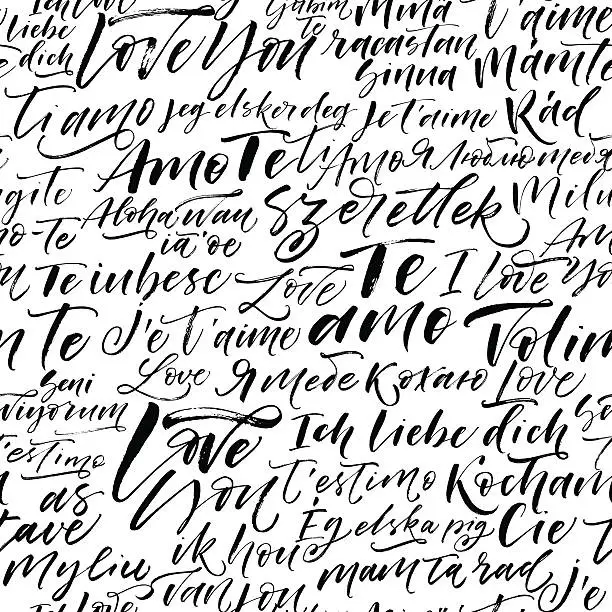 Ich
liebe
dich
Love You
Te
racastan
Mina
t'aime
Sinna
Mámte
ti amo
Jeg elsker deg
Je t'aime
Rád
Amo Te
ti Amo
Я люблю тебя
gite
Aloha wau
ia 'oe
Szeretlek
Milu
mo-te
Te iubesc
Love
Te
I Love
Am
Yo
Te
J'e t'aime
amo
Volim
Seni
viyorum
Love
Я тебе кохаю
Love
Love
You
Ich liebe dich
t'estimo
t'estimo
Kocham
as
tave
Eg elska pig
Cie
myliu
ik hou
van jou
mam ta rad
j'e
Ich
Love